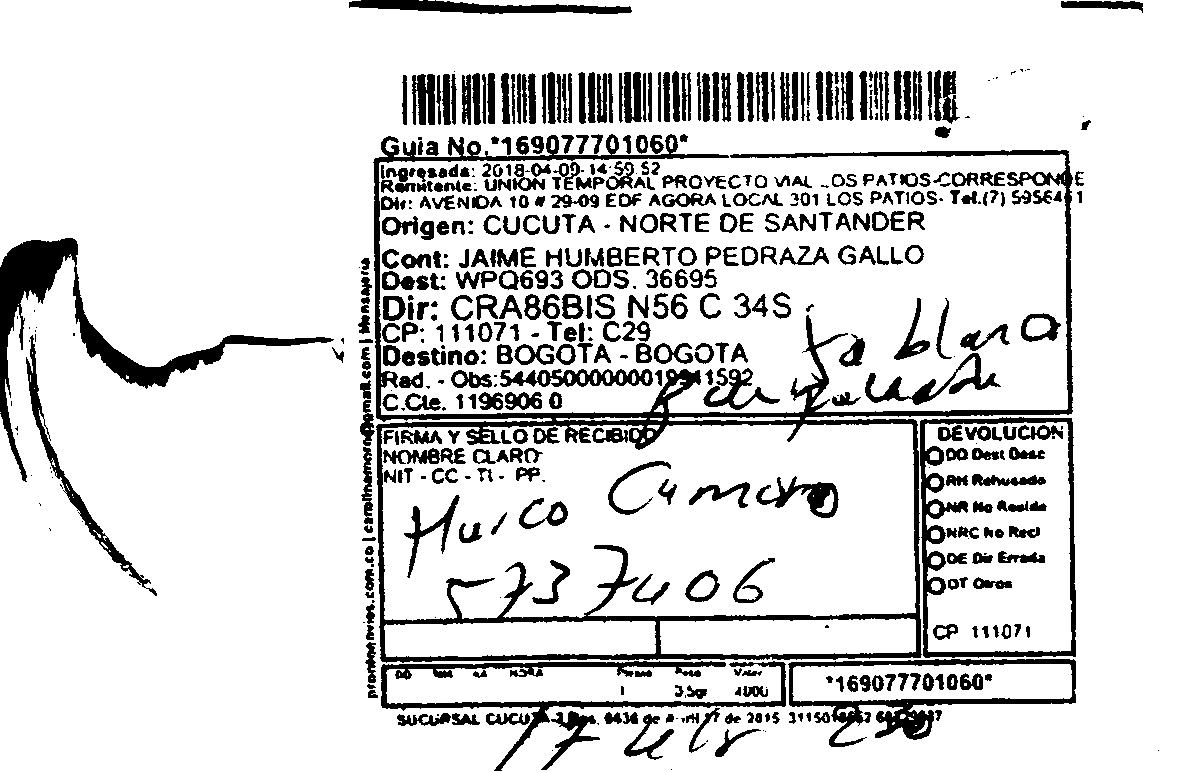 Guia No.*169077701060*
Ingresada: 2018-04-09-14:59:52
Remitente: UNION TEMPORAL PROYECTO VIAL LOS PATIOS-CORRESPONDE
Dir: AVENIDA 10 # 29-09 EDF AGORA LOCAL 301 LOS PATIOS- Tel.(7)
Origen: CUCUTA - NORTE DE SANTANDER
Cont: JAIME HUMBERTO PEDRAZA GALLO
Dest: WPQ693 ODS. 36695
Dir: CRA86BIS N56 C 34S
CP: 111071 - Tel: C29
Destino: BOGOTA - BOGOTA
blanca
Rad. - Obs:
C.Cte. 1196906 0
FIRMA Y SELLO DE RECIBIDO
NOMBRE CLARO
NIT - CC - TI - PP.
5737406
DEVOLUCION
DD Dest Desc
RH Rehusado
NR No Reside
NRC No Recl
DE Dir Errada
OT Otros
CP 111071
HORA Peso Valor
1 3.5gr 4000
*169077701060*
SUCURSAL CUCUTA de 2015